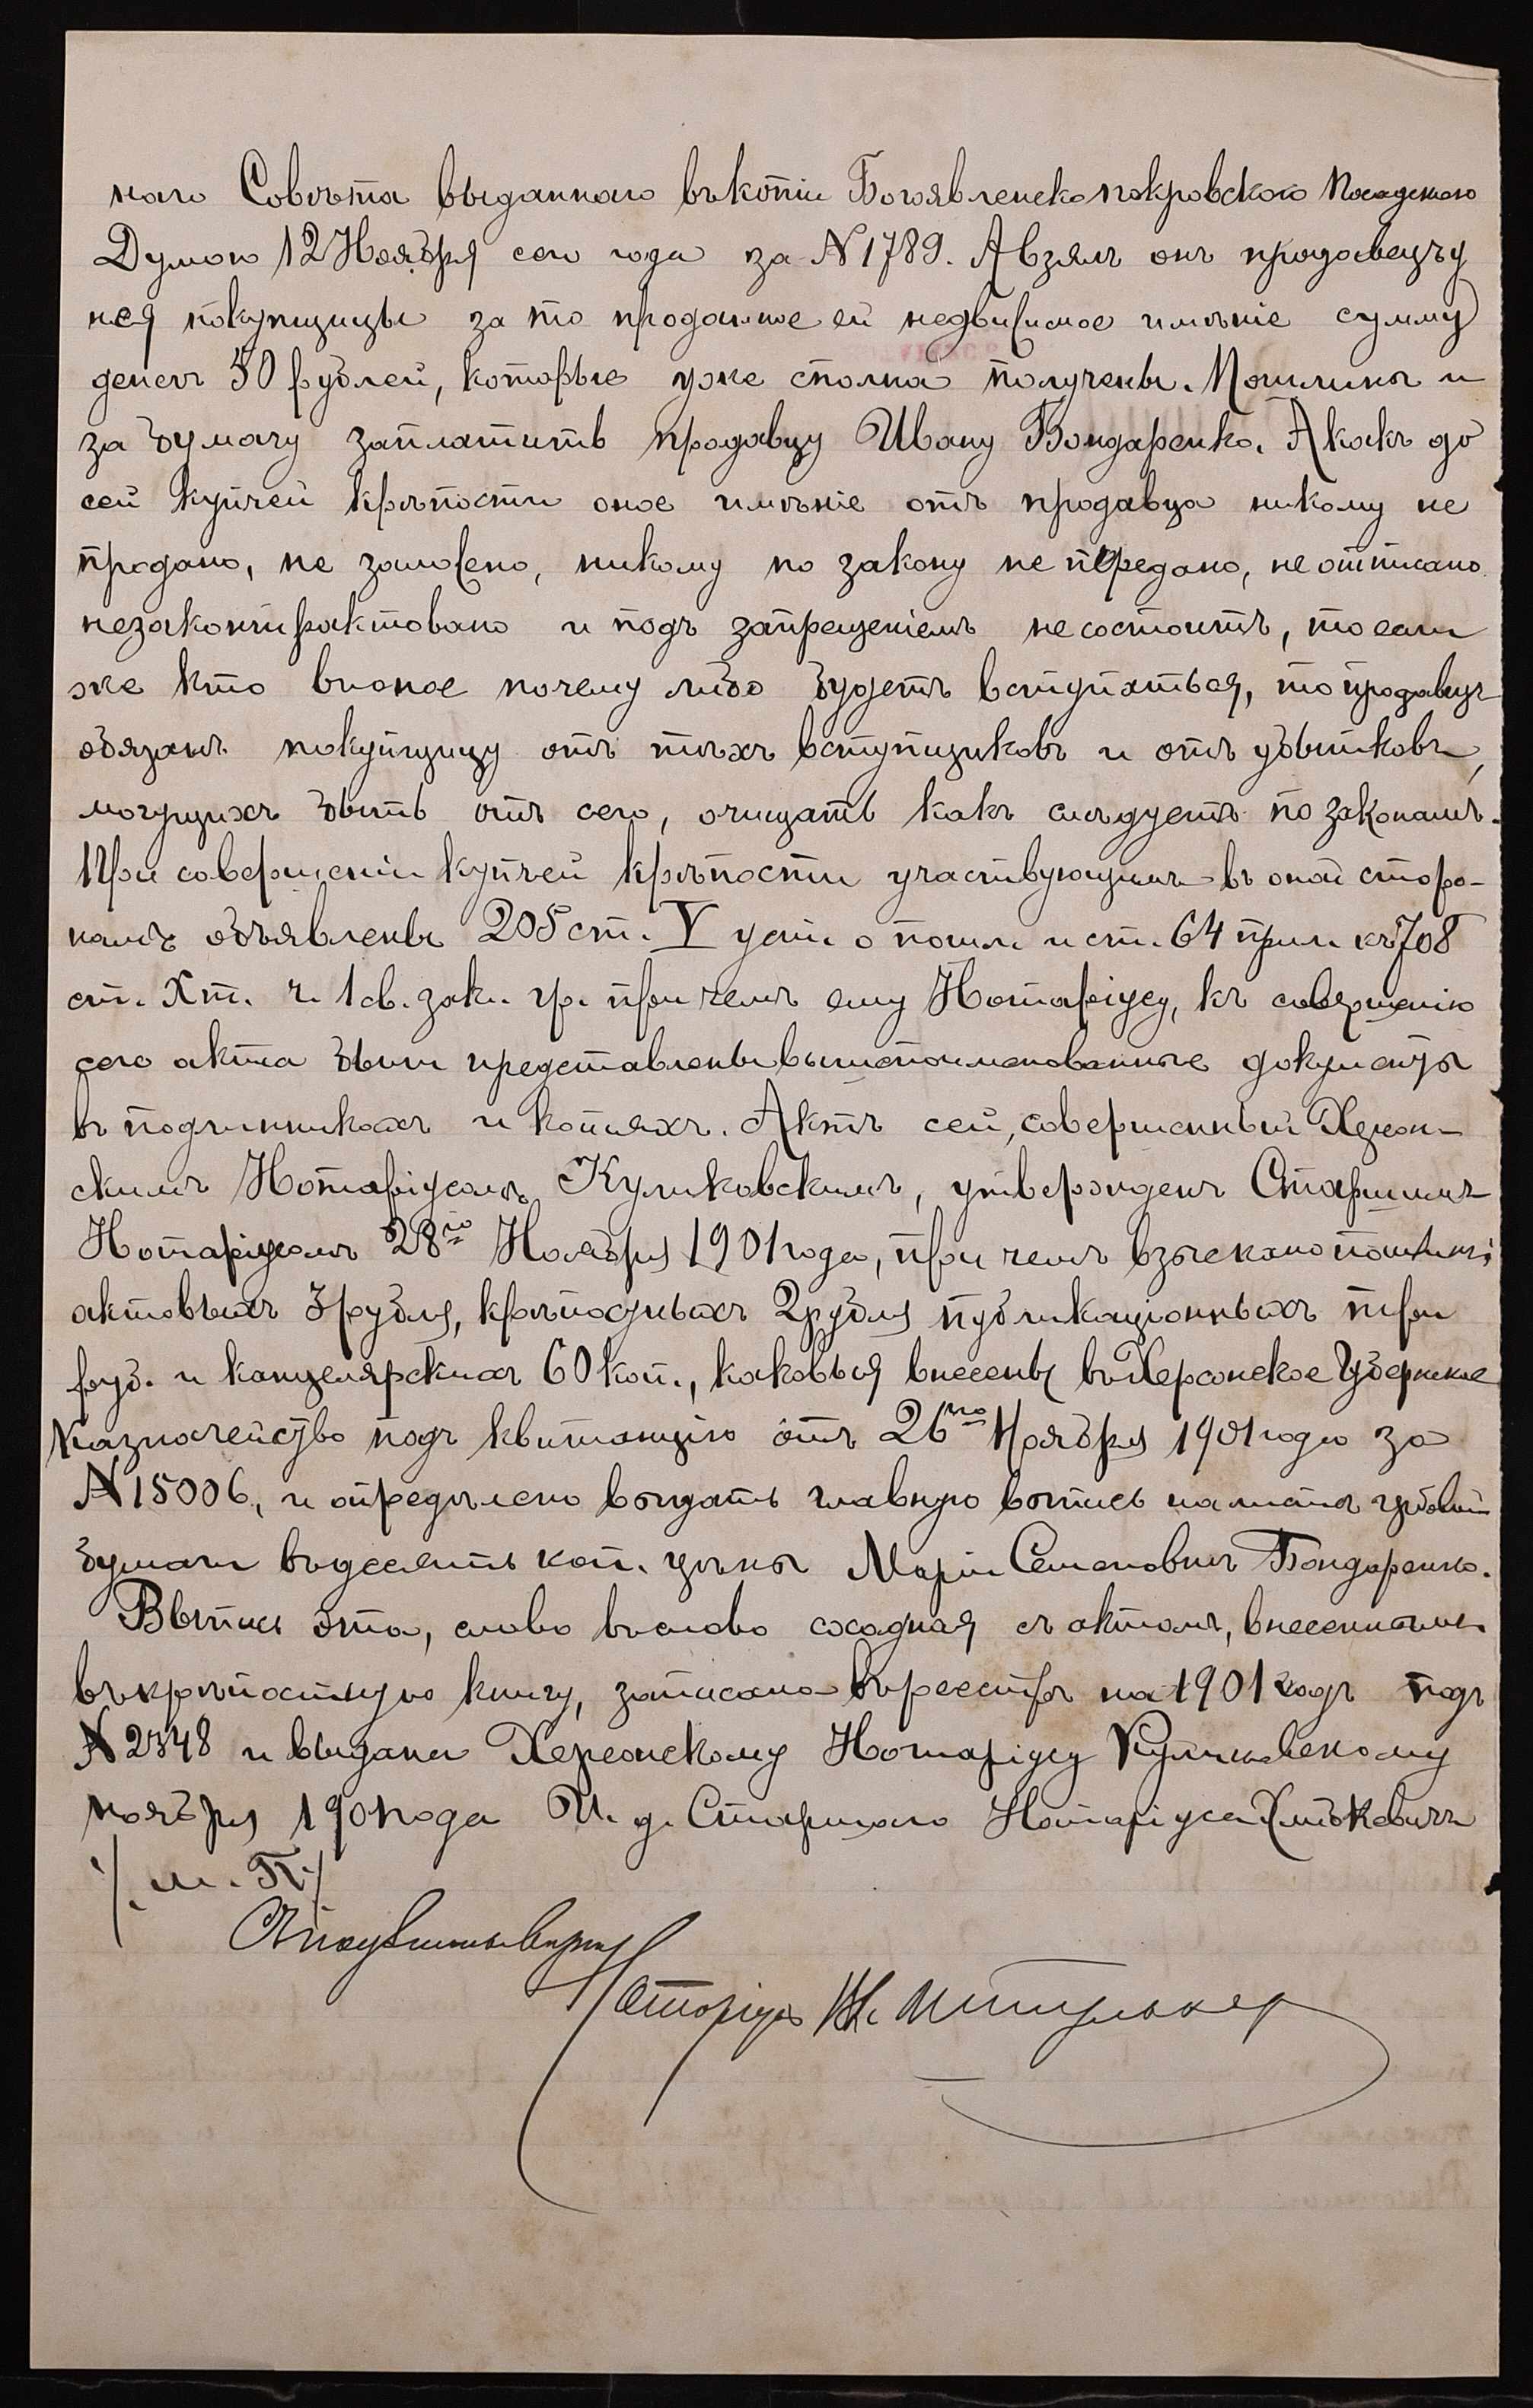 наго Совѣта выданнаго въ копіи Богоявленскопокровскою Посадскою
Думою 12 Ноября сего года за № 1789. А взялъ онъ продавецъ у
нея покупщицы за то проданное ей недвижимое имѣніе сумму
денегъ 50 рублей, которые уже сполна получены. Пошлины и
за бумагу заплатить продавцу Ивану Бондаренко. А какъ до
сей купчей крѣпости оное имѣніе отъ продавца никому не
продано, не заложено, никому по закону не передано, не отписано
незаконтрактовано и подъ запрещеніемъ не состоитъ, то если
же кто в иное почему либо будетъ вступаться, то продавецъ
обязанъ покупщицу отъ тѣхъ вступщиковъ и отъ убытковъ,
могущихъ быть отъ сего, очищать какъ слѣдуетъ по законамъ.
При совершеніи купчей крѣпости участвующимъ въ оной сторо-
намъ объявлены 205 ст. V уст. о пошл. и ст. 64 прил. къ 708
ст. X т. ч. 1 св. зак. гр. при чемъ ему Нотаріусу, къ совершенію
сего акта были представлены вышепоименованные документы
въ подлинникахъ и копіяхъ. Актъ сей, совершенный Херсон-
скимъ Нотаріусомъ Куликовскимъ, утвержденъ Старшимъ
Нотаріусомъ 28го Ноября 1901 года, при чемъ взыскано пошлинъ:
актовыхъ 3 рубля, крѣпостныхъ 2 рубля публикаціонныхъ три
руб. и канцелярскихъ 60 коп., каковыя внесены въ Херсонское Губернское
Казначейство подъ квитанцію отъ 26го Ноября 1901 года за
№ 15006, и опредѣлено выдать главную выпись на листѣ гербовой
бумаги въ десять коп. цѣны Маріи Семеновнѣ Бондаренко.
Выпись эта, слово въ слово сходная съ актомъ, внесеннымъ
въ крѣпостную книгу, записана въ реестръ на 1901 годъ подъ
№ 2348 и выдана Херсонскому Нотаріусу Куликовскому
ноября 1901 года И. д. Старшаго Нотаріуса Хмѣлкевичъ
/. м. П./
Нотаріусъ